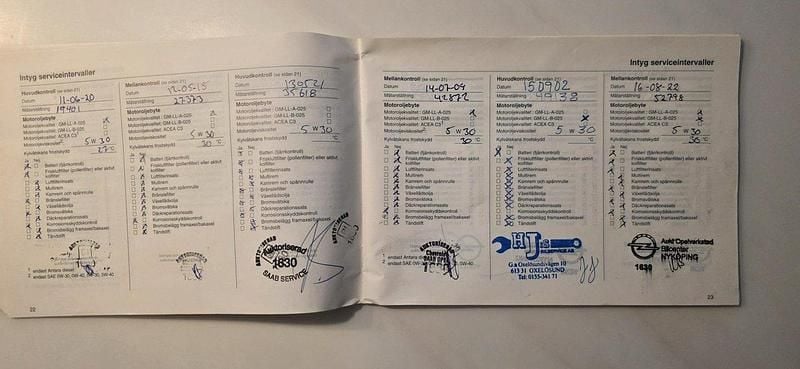 Intyg serviceintervaller
Huvudkontroll (se sidan 21)
Datum 11-06-20
Mätarställning 19401
Motoroljebyte
Motoroljekvalitet: GM-LL-A-025
Motoroljekvalitet: GM-LL-B-025
Motoroljekvalitet: ACEA C3
Motoroljeviskositet 5 W 30
Kylvätskans frostskydd °C
Ja Nej
Batteri (fjärrkontroll)
Friskluftfilter (pollenfilter) eller aktivt
kolfilter
Luftfilterinsats
Multirem
Kamrem och spännrulle
Bränslefilter
Växellådsolja
Bromsvätska
Däckreparationssats
Korrosionsskyddskontroll
Bromsbelägg framaxel/bakaxel
Tändstift
1 endast Antara diesel
2 endast SAE 0W-30, 0W-40, 5W-30, 5W-40
22
Mellankontroll (se sidan 21)
Datum 12-05-15
Mätarställning 27373
Motoroljebyte
Motoroljekvalitet: GM-LL-A-025
Motoroljekvalitet: GM-LL-B-025
Motoroljekvalitet: ACEA C3
Motoroljeviskositet 5 W 30
Kylvätskans frostskydd 30 °C
Ja Nej
Batteri (fjärrkontroll)
Friskluftfilter (pollenfilter) eller aktivt
kolfilter
Luftfilterinsats
Multirem
Kamrem och spännrulle
Bränslefilter
Växellådsolja
Bromsvätska
Däckreparationssats
Korrosionsskyddskontroll
Bromsbelägg framaxel/bakaxel
Tändstift
Huvudkontroll (se sidan 21)
Datum 130521
Mätarställning 35618
Motoroljebyte
Motoroljekvalitet: GM-LL-A-025
Motoroljekvalitet: GM-LL-B-025
Motoroljekvalitet: ACEA C3
Motoroljeviskositet 5 W 30
Kylvätskans frostskydd °C
Ja Nej
Batteri (fjärrkontroll)
Friskluftfilter (pollenfilter) eller aktivt
kolfilter
Luftfilterinsats
Multirem
Kamrem och spännrulle
Bränslefilter
Växellådsolja
Bromsvätska
Däckreparationssats
Korrosionsskyddskontroll
Bromsbelägg framaxel/bakaxel
Tändstift
Auktoriserad
1830
SAAB SERVICE
Intyg serviceintervaller
Mellankontroll (se sidan 21)
Datum 14-07-09
Mätarställning 42872
Motoroljebyte
Motoroljekvalitet: GM-LL-A-025
Motoroljekvalitet: GM-LL-B-025
Motoroljekvalitet: ACEA C3
Motoroljeviskositet 5 W 30
Kylvätskans frostskydd 30 °C
Ja Nej
Batteri (fjärrkontroll)
Friskluftfilter (pollenfilter) eller aktivt
kolfilter
Luftfilterinsats
Multirem
Kamrem och spännrulle
Bränslefilter
Växellådsolja
Bromsvätska
Däckreparationssats
Korrosionsskyddskontroll
Bromsbelägg framaxel/bakaxel
Tändstift
1 endast Antara diesel
2 endast SAE 0W-30, 0W-40, 5W-30, 5W-40
Huvudkontroll (se sidan 21)
Datum 150902
Mätarställning
Motoroljebyte
Motoroljekvalitet: GM-LL-A-025
Motoroljekvalitet: GM-LL-B-025
Motoroljekvalitet: ACEA C3
Motoroljeviskositet 5 W 30
Kylvätskans frostskydd °C
Ja Nej
Batteri (fjärrkontroll)
Friskluftfilter (pollenfilter) eller aktivt
kolfilter
Luftfilterinsats
Multirem
Kamrem och spännrulle
Bränslefilter
Växellådsolja
Bromsvätska
Däckreparationssats
Korrosionsskyddskontroll
Bromsbelägg framaxel/bakaxel
Tändstift
HJ:s
BILSERVICE AB
G:a Oxelösundsvägen 10
613 31 OXELÖSUND
Tel: 0155-341 71
Mellankontroll (se sidan 21)
Datum 16-08-22
Mätarställning 52798
Motoroljebyte
Motoroljekvalitet: GM-LL-A-025
Motoroljekvalitet: GM-LL-B-025
Motoroljekvalitet: ACEA C3
Motoroljeviskositet 5 W 30
Kylvätskans frostskydd 30 °C
Ja Nej
Batteri (fjärrkontroll)
Friskluftfilter (pollenfilter) eller aktivt
kolfilter
Luftfilterinsats
Multirem
Kamrem och spännrulle
Bränslefilter
Växellådsolja
Bromsvätska
Däckreparationssats
Korrosionsskyddskontroll
Bromsbelägg framaxel/bakaxel
Tändstift
Aukt Opelverkstad
Bilcenter
NYKÖPING
1830
23